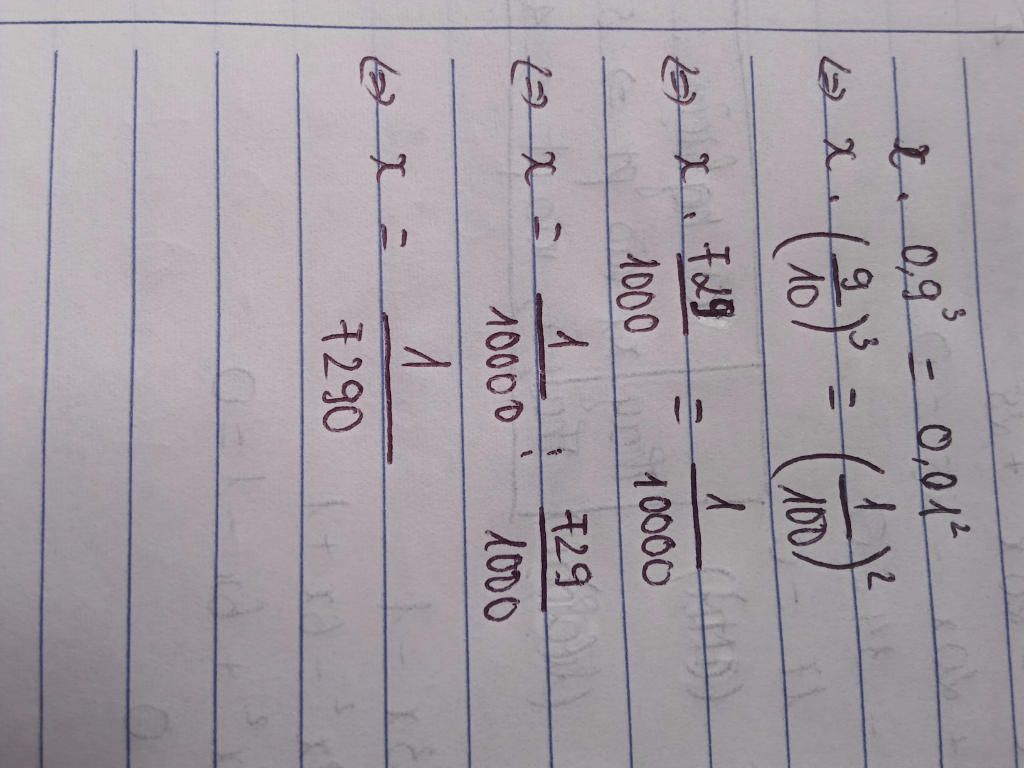 x . 0,9³ = 0,01²
⇔ x . (9/10)³ = (1/100)²
⇔ x . 729/1000 = 1/10000
⇔ x = 1/10000 : 729/1000
⇔ x = 1/7290